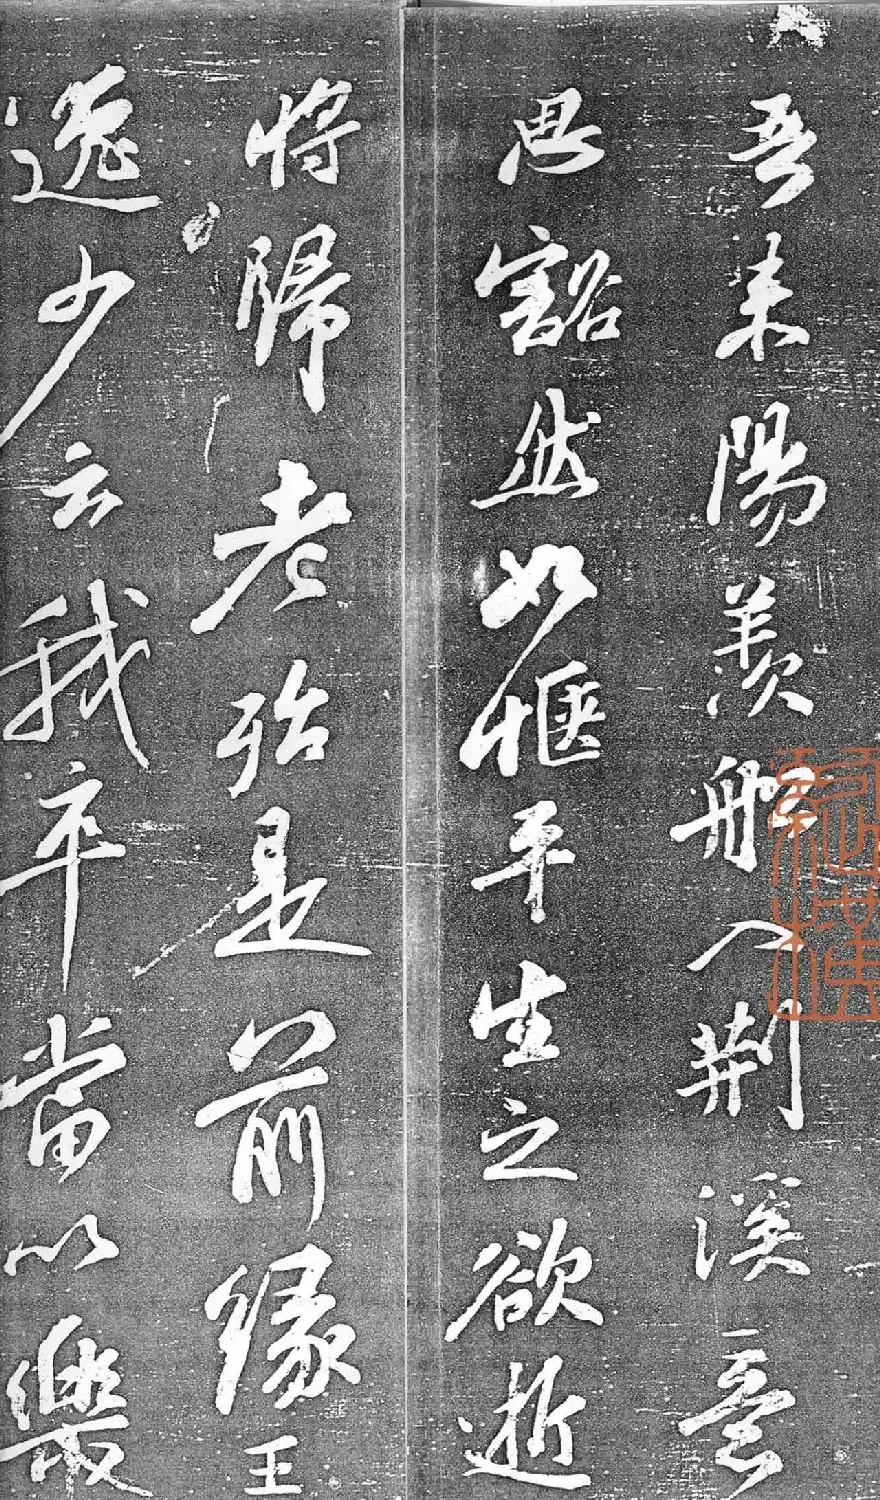 吾来陽羨船入荆溪意
思豁然如愜平生之欲逝
将歸老殆是前緣王
逸少云我卒當以樂